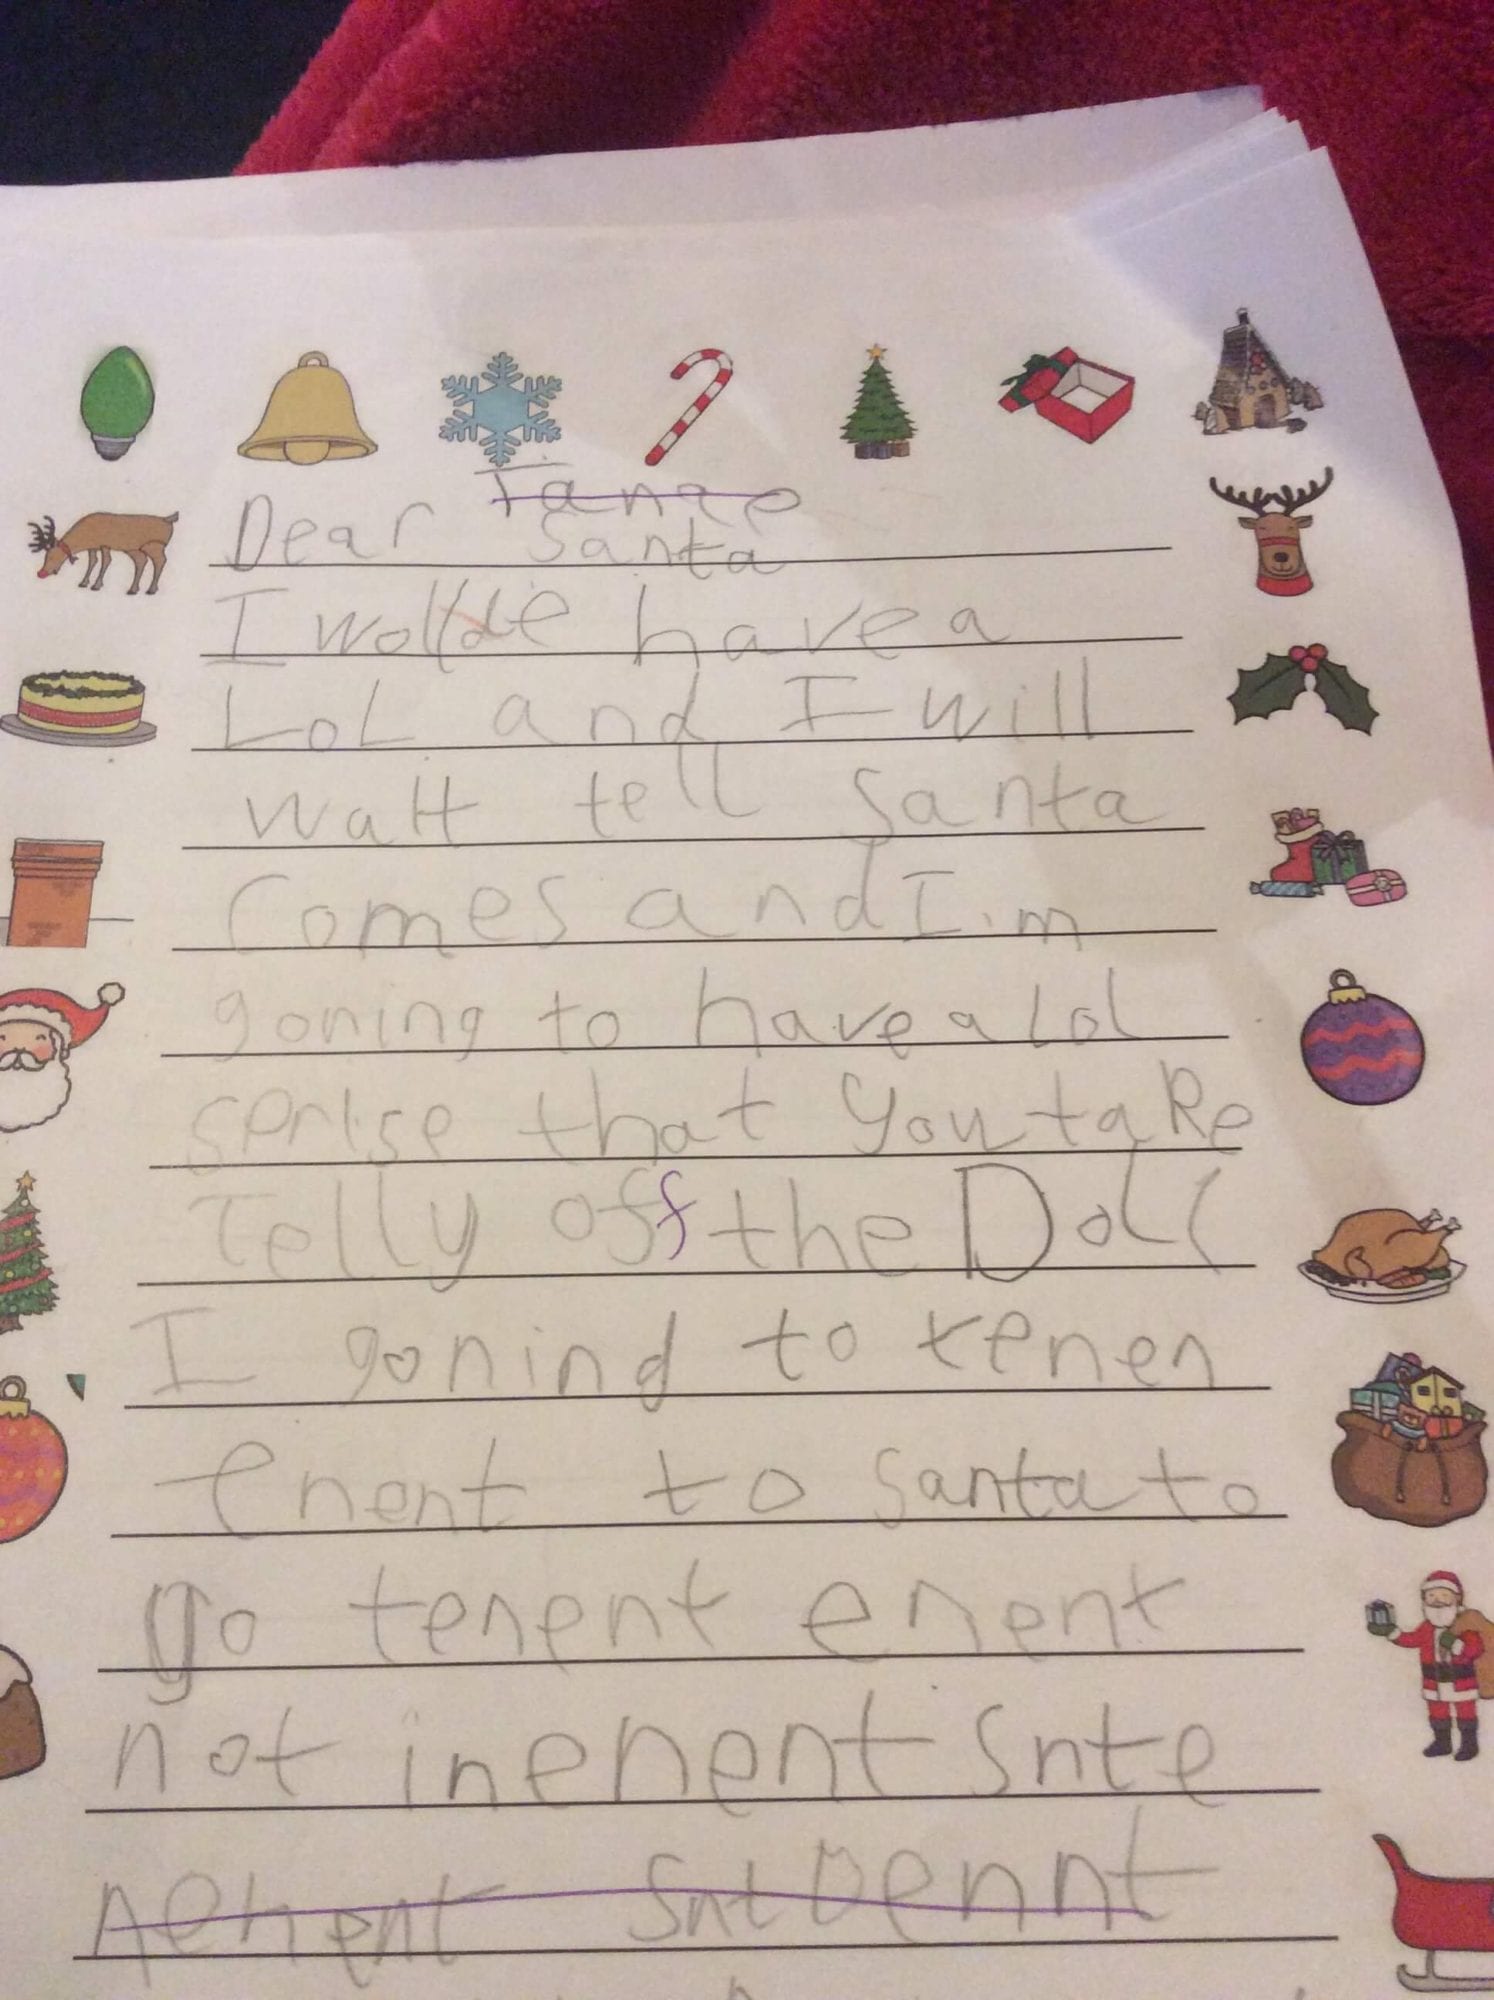 Dear
Santa
I wollde have a
LoL and I will
wait tell Santa
Comes and I'm
goning to have a lol
serise that you take
Telly off the Doll
I gonind to tenen
enent to Santa to
go tenent enent
not inenent Snte
nenent Snt Dennt